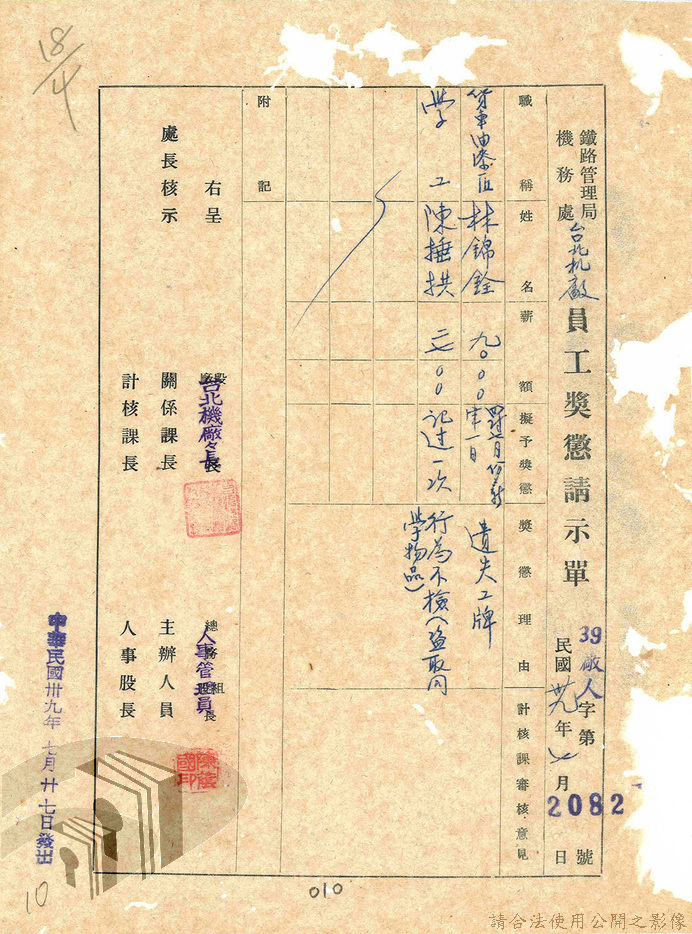 鐵路管理局
機務處
台北机廠
員工獎懲請示單
39廠人字第2082號
民國卅九年七月 日
職稱
姓名
薪額
擬予獎懲
獎懲理由
計核課審核意見
貨車油漆匠
林錦銓
九〇〇〇
遺失工牌
學工
陳捶拱
記过一次
行為不檢(盜取同
學物品)
附記
右呈
處長核示
台北機廠々長
關係課長
計核課長
總務組長
人事管理員
主辦人員
人事股長
中華民國卅九年七月廿七日發出
18/4
10
010
請合法使用公開之影像